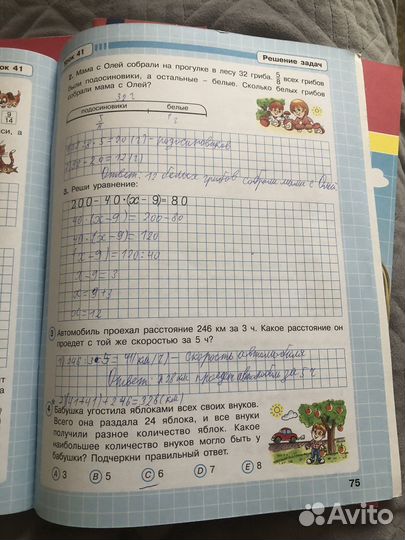 ок 41
Урок 41
Решение задач
2. Мама с Олей собрали на прогулке в лесу 32 гриба. 5/8 всех грибов
были подосиновики, а остальные – белые. Сколько белых грибов
собрали мама с Олей?
32 г
подосиновики белые
5/8 ?
5 = 20 (г) - подосиновиков
20 = 12 (г)
Ответ: 12 белых грибов собрали мама с Олей.
3. Реши уравнение:
200 – 40·(x – 9) = 80
40·(x – 9) = 200 - 80
40·(x – 9) = 120
(x – 9) = 120:40
x – 9 = 3
x = 9+3
x = 12
3 Автомобиль проехал расстояние 246 км за 3 ч. Какое расстояние он
проедет с той же скоростью за 5 ч?
скорость автомобиля
Ответ: км проедет автомобиль за 5 ч
+ 246 = 328 (км)
4 Бабушка угостила яблоками всех своих внуков.
Всего она раздала 24 яблока, и все внуки
получили разное количество яблок. Какое
наибольшее количество внуков могло быть у
бабушки? Подчеркни правильный ответ.
A 3 B 5 C 6 D 7 E 8
75
9/14
си, а
Avito